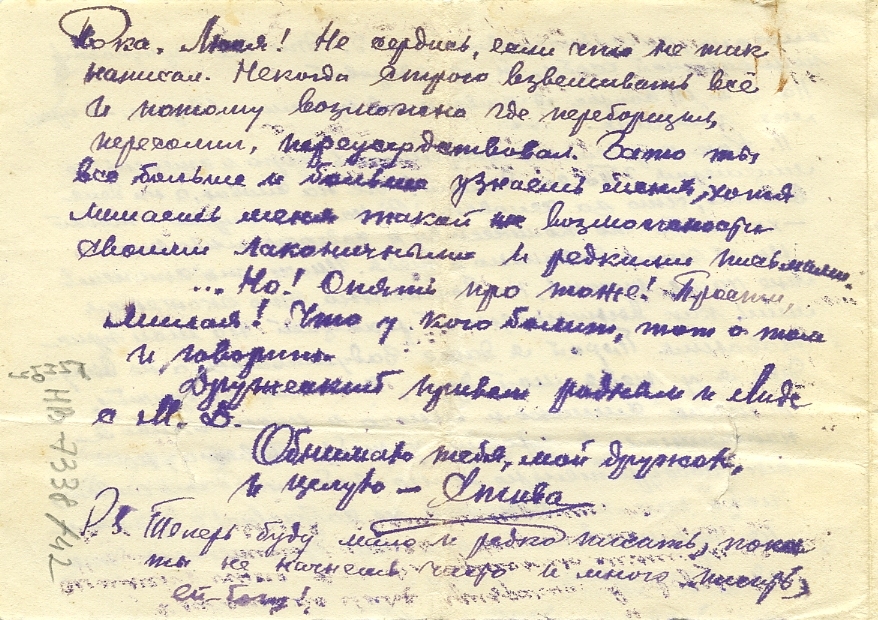 Пока, Люся! Не сердись, если что не так
написал. Некогда строго взвешивать всё
и потому возможно где переборщил,
пересолил, переусердствовал. Зато ты
всё больше и больше узнаешь меня, хотя
лишаешь меня такой возможности
своими лаконичными и редкими письмами.
... Но! Опять про тоже! Прости,
милая! Что у кого болит, тот о том
и говорит.
Дружеский привет родным и Лиде
с М. В.
Обнимаю тебя, мой дружок,
и целую —
P.S. Теперь буду мало и редко писать, пока
ты не начнешь часто и много писать,
ей-богу!
НВ-7338/42